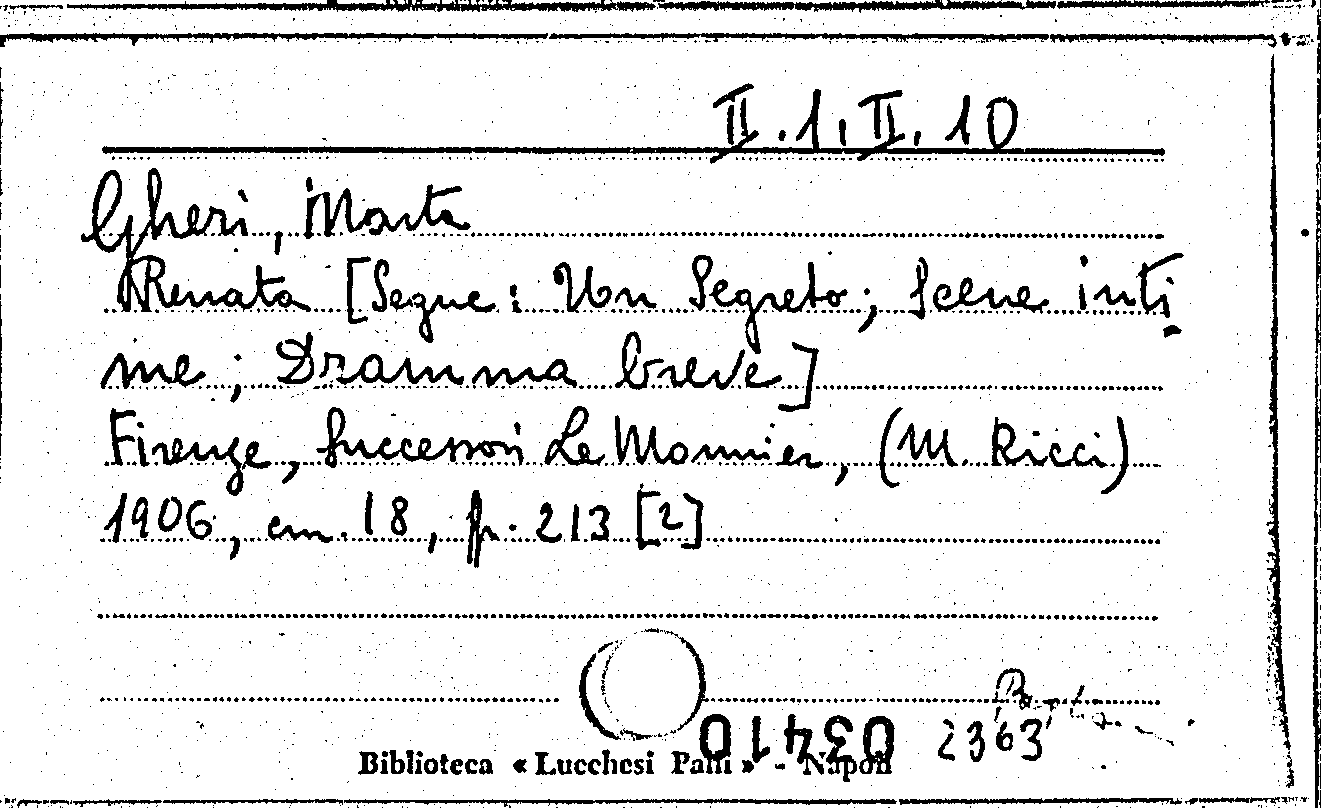 II.1.II.10
Gheri, Marta
Renata [Segue: Un Segreto; Scene inti
me; Dramma breve]
Firenze, Successori Le Monnier, (M. Ricci)
1906, cm. 18, p. 213 [2]
2363
Biblioteca « Lucchesi Palli » - Napoli